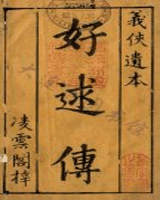 義俠遺本
好逑傳
凌雲閣梓